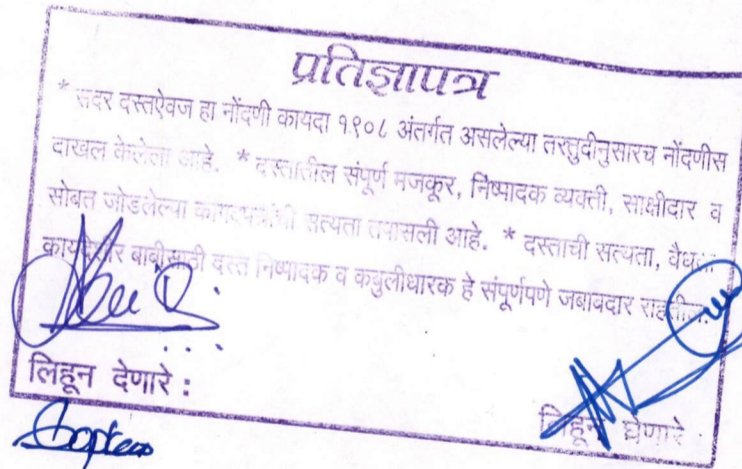 प्रतिज्ञापत्र
* सदर दस्तऐवज हा नोंदणी कायदा १९०८ अंतर्गत असलेल्या तरतुदीनुसारच नोंदणीस
दाखल केलेला आहे. * दस्तातील संपूर्ण मजकूर, निष्पादक व्यक्ती, साक्षीदार व
सोबत जोडलेल्या कागदपत्रांची सत्यता तपासली आहे. * दस्ताची सत्यता, वैधता
कायदेशीर बाबींसाठी दस्त निष्पादक व कबुलीधारक हे संपूर्णपणे जबाबदार राहतील.
लिहून देणारे :
लिहून घेणारे